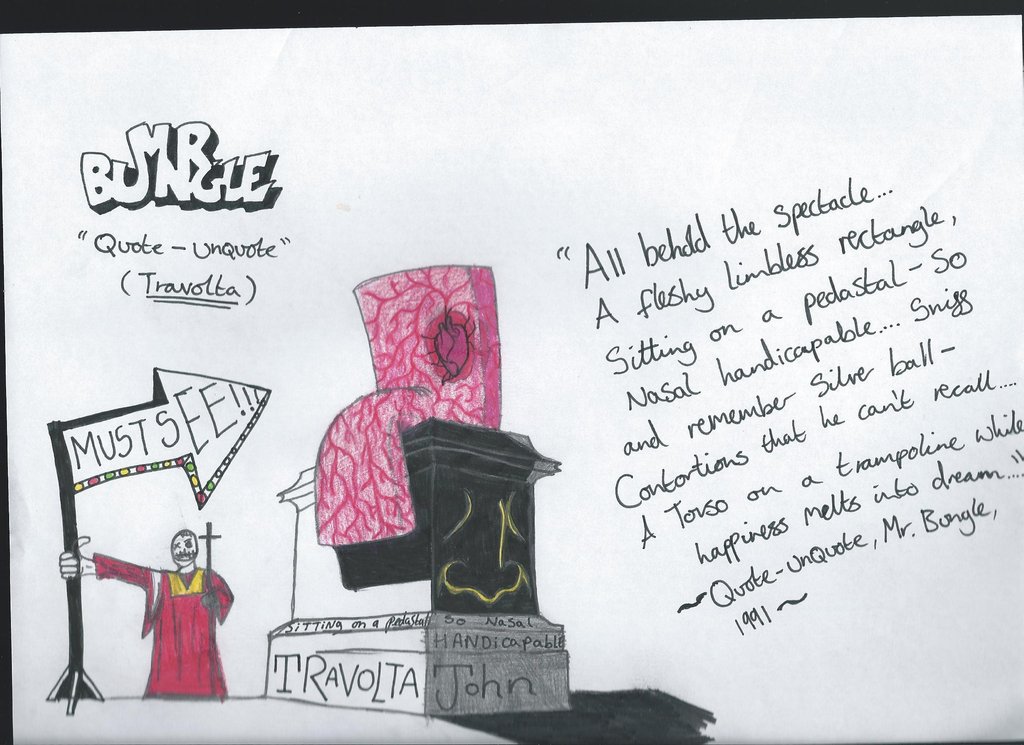 MR
BUNGLE
"Quote - UnQuote"
(Travolta)
"All behold the spectacle...
A fleshy limbless rectangle,
Sitting on a pedastal - So
Nasal handicapable.... Sniff
and remember Silver ball -
Contortions that he can't recall....
A Torso on a trampoline while
happiness melts into dream...."
~ Quote-UnQuote, Mr. Bungle,
1991 ~
MUST SEE!!!
SITTING on a pedastal
So Nasal
HANDicapable
TRAVOLTA
John